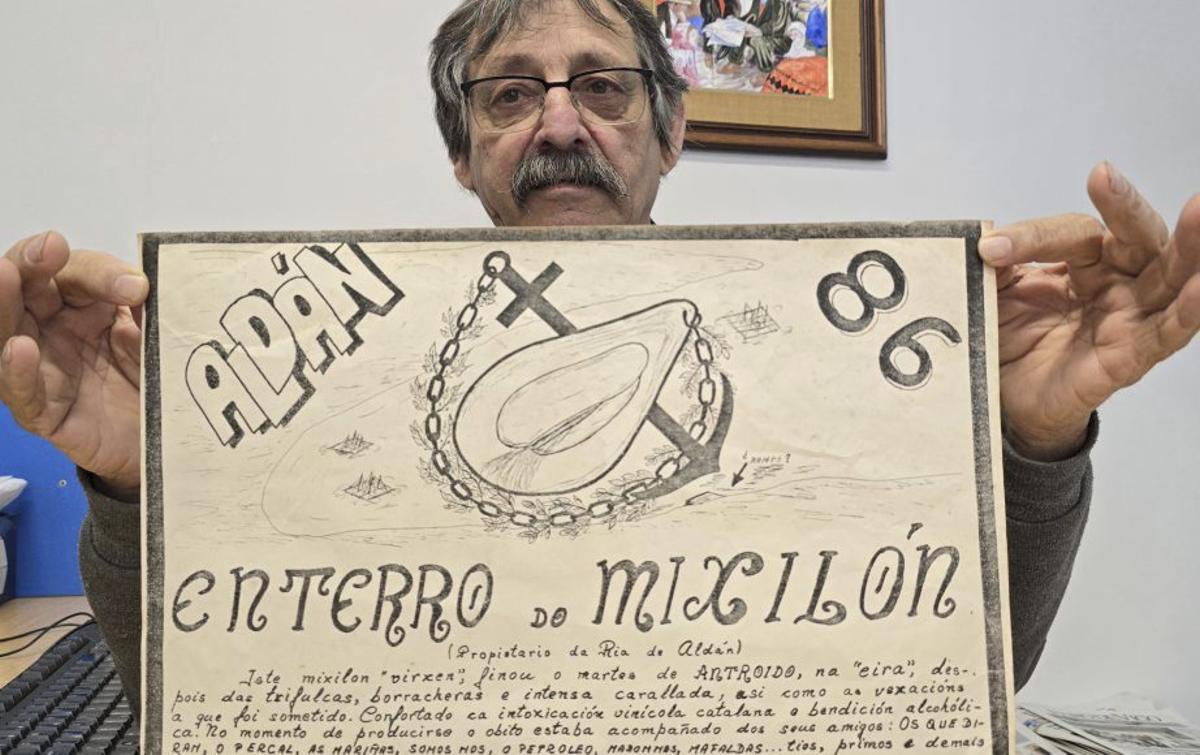 ALDÁN
86
¿ BOMPS ?
ENTERRO DO MIXILÓN
(Propietario da Ria de Aldán)
Iste mixilon "virxen", finou o martes de ANTROIDO, na "eira", des-
pois das trifulcas, borracheras e intensa carallada, asi como as vexacións
a que foi sometido. Confortado ca intoxicación vinícola catalana e bendición alcohóli-
ca. No momento de producirse o obito estaba acompañado dos seus amigos: OS QUE DI-
RAN, O PERCAL, AS MARIÑAS, SOMOS NOS, O PETROLEO, MADONNAS, MAFALDAS... tios, primos e demais